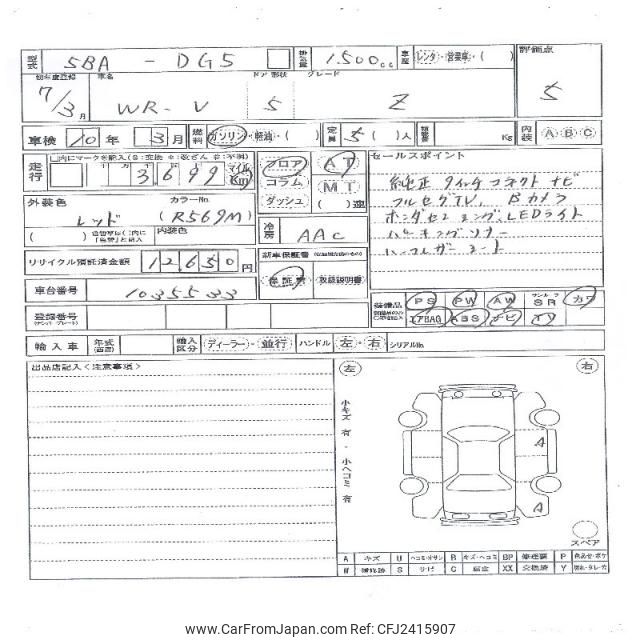 型式 5BA - DG5 排気量 1.500cc 車歴 レンタ・営業車・( ) 評価点
初年度登録 車名 ドア 形状 グレード
7/3月 WR-V 5 Z 5
車検 10年 3月 燃料 ガソリン・軽油・( ) 定員 5( )人 積載量 Kg 内装 A B C
走行 3,699 マイル Km フロア コラム ダッシュ AT MT ( )速
セールスポイント
純正9インチコネクトナビ
フルセグTV, Bカメラ
ホンダセンシング, LEDライト
パーキングソナー
ハーフレザーシート
外装色 カラーNo.
レッド (R569M)
内装色
冷房 AAC
リサイクル預託済金額 12,650円
新車保証書
保証書・取扱説明書
車台番号 1035533
装備品 PS PW AW SR サンルーフ カワ
エアBAG ABS ナビ TV
登録番号
(ナンバープレート)
輸入車 年式 輸入区分 ディーラー・並行 ハンドル 左・右 シリアルNo.
出品店記入<注意事項>
左 右
小キズ有・小ヘコミ有
A
A
スペア
A キズ U ヘコミ B キズ・ヘコミ BP P
W 補修跡 S サビ C 腐食 XX 交換済 Y
www.CarFromJapan.com CFJ2415907